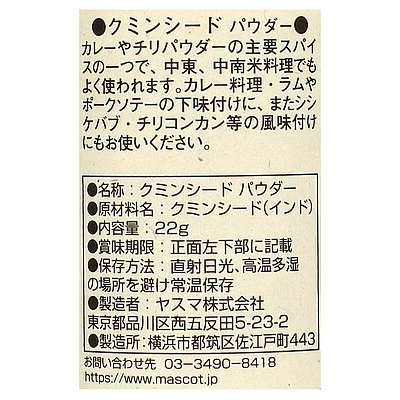 ●クミンシード パウダー●
カレーやチリパウダーの主要スパイ
スの一つで、中東、中南米料理でも
よく使われます。カレー料理・ラムや
ポークソテーの下味付けに、またシシ
ケバブ・チリコンカン等の風味付け
にもお使いください。
●名称：クミンシード パウダー
●原材料名：クミンシード(インド)
●内容量：22g
●賞味期限：正面左下部に記載
●保存方法：直射日光、高温多湿
の場所を避け常温保存
●製造者：ヤスマ株式会社
東京都品川区西五反田5-23-2
●製造所：横浜市都筑区佐江戸町443
お問い合わせ先 03-3490-8418
https://www.mascot.jp/